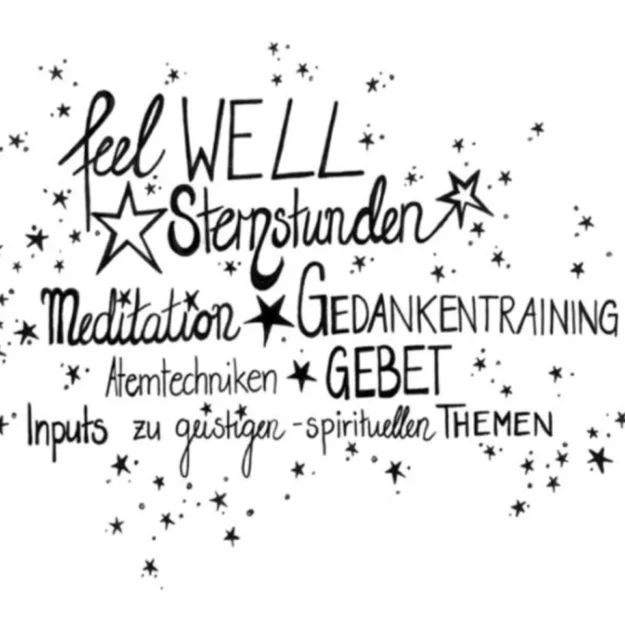 feel WELL
Sternstunden
Meditation ★ GEDANKENTRAINING
Atemtechniken ★ GEBET
Inputs zu geistigen - spirituellen THEMEN